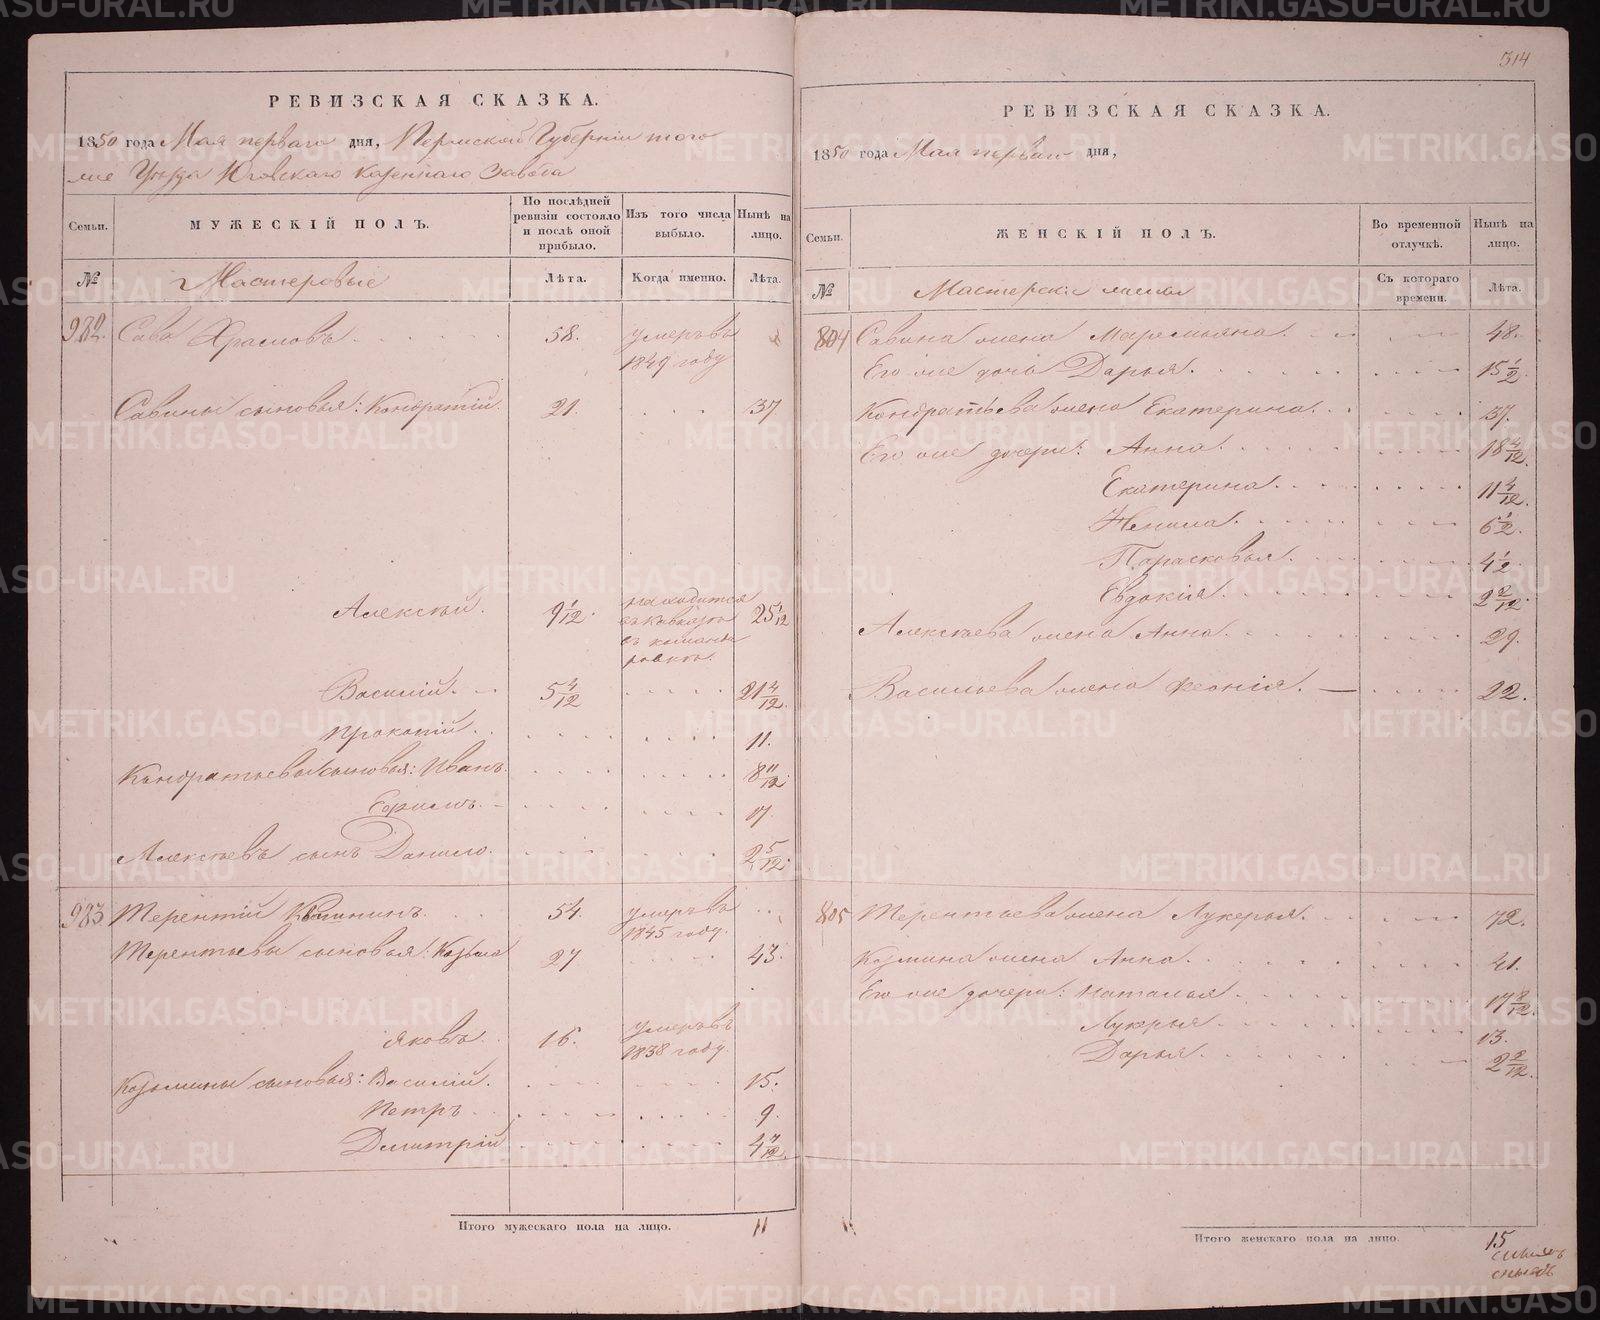 314
РЕВИЗСКАЯ СКАЗКА.
1850 года Мая перваго дня, Пермской Губерніи того
же Уѣзда Юговскаго Казеннаго Завода
Семьи.
МУЖЕСКІЙ ПОЛЪ.
По послѣдней ревизіи состояло и послѣ оной прибыло.
Изъ того числа выбыло.
Нынѣ на лицо.
№
Мастеровые
Лѣта.
Когда именно.
Лѣта.
982. Сава Храмовъ 58. умеръ въ 1849 году
Савины сыновья: Кондратій. 21. 37
Алексѣй. 9 1/12. находится въ командировкѣ. 25 1/12
Василій. 5 4/12 21 4/12.
Прокопій. 11.
Кондратьевы сыновья: Иванъ. 8 11/12.
Ефимъ.
Алексѣевъ сын Данило. 2 5/12.
983 Терентій 54. умеръ въ 1845 году.
Терентьевы сыновья: Козьма 27 43.
Яковъ. 16. умеръ въ 1838 году
Козьмины сыновья: Василій. 15.
Петръ 9.
Дмитрій 4 7/12.
Итого мужескаго пола на лицо. 11
РЕВИЗСКАЯ СКАЗКА.
1850 года Мая перваго дня,
Семьи.
ЖЕНСКІЙ ПОЛЪ.
Во временной отлучкѣ.
Нынѣ на лицо.
№
Мастерскіе жены
Съ котораго времени.
Лѣта.
804 Савина жена Маремьяна. 48.
Его же дочь Дарья. 15 1/2.
Кондратьева жена Екатерина. 37.
Его же дочери: Анна. 18 4/12.
Екатерина. 11 4/12.
Ненила. 6 1/2.
Парасковья. 4 1/2.
Евдокія. 2 2/12.
Алексѣева жена Анна. 29.
Васильева жена Феонія. 22.
805 Терентьева жена Лукерья. 72.
Козмина жена Анна. 41.
Его же дочери: Наталья. 17 8/12.
Лукерья 13.
Дарья. 2 2/12.
Итого женскаго пола на лицо. 15